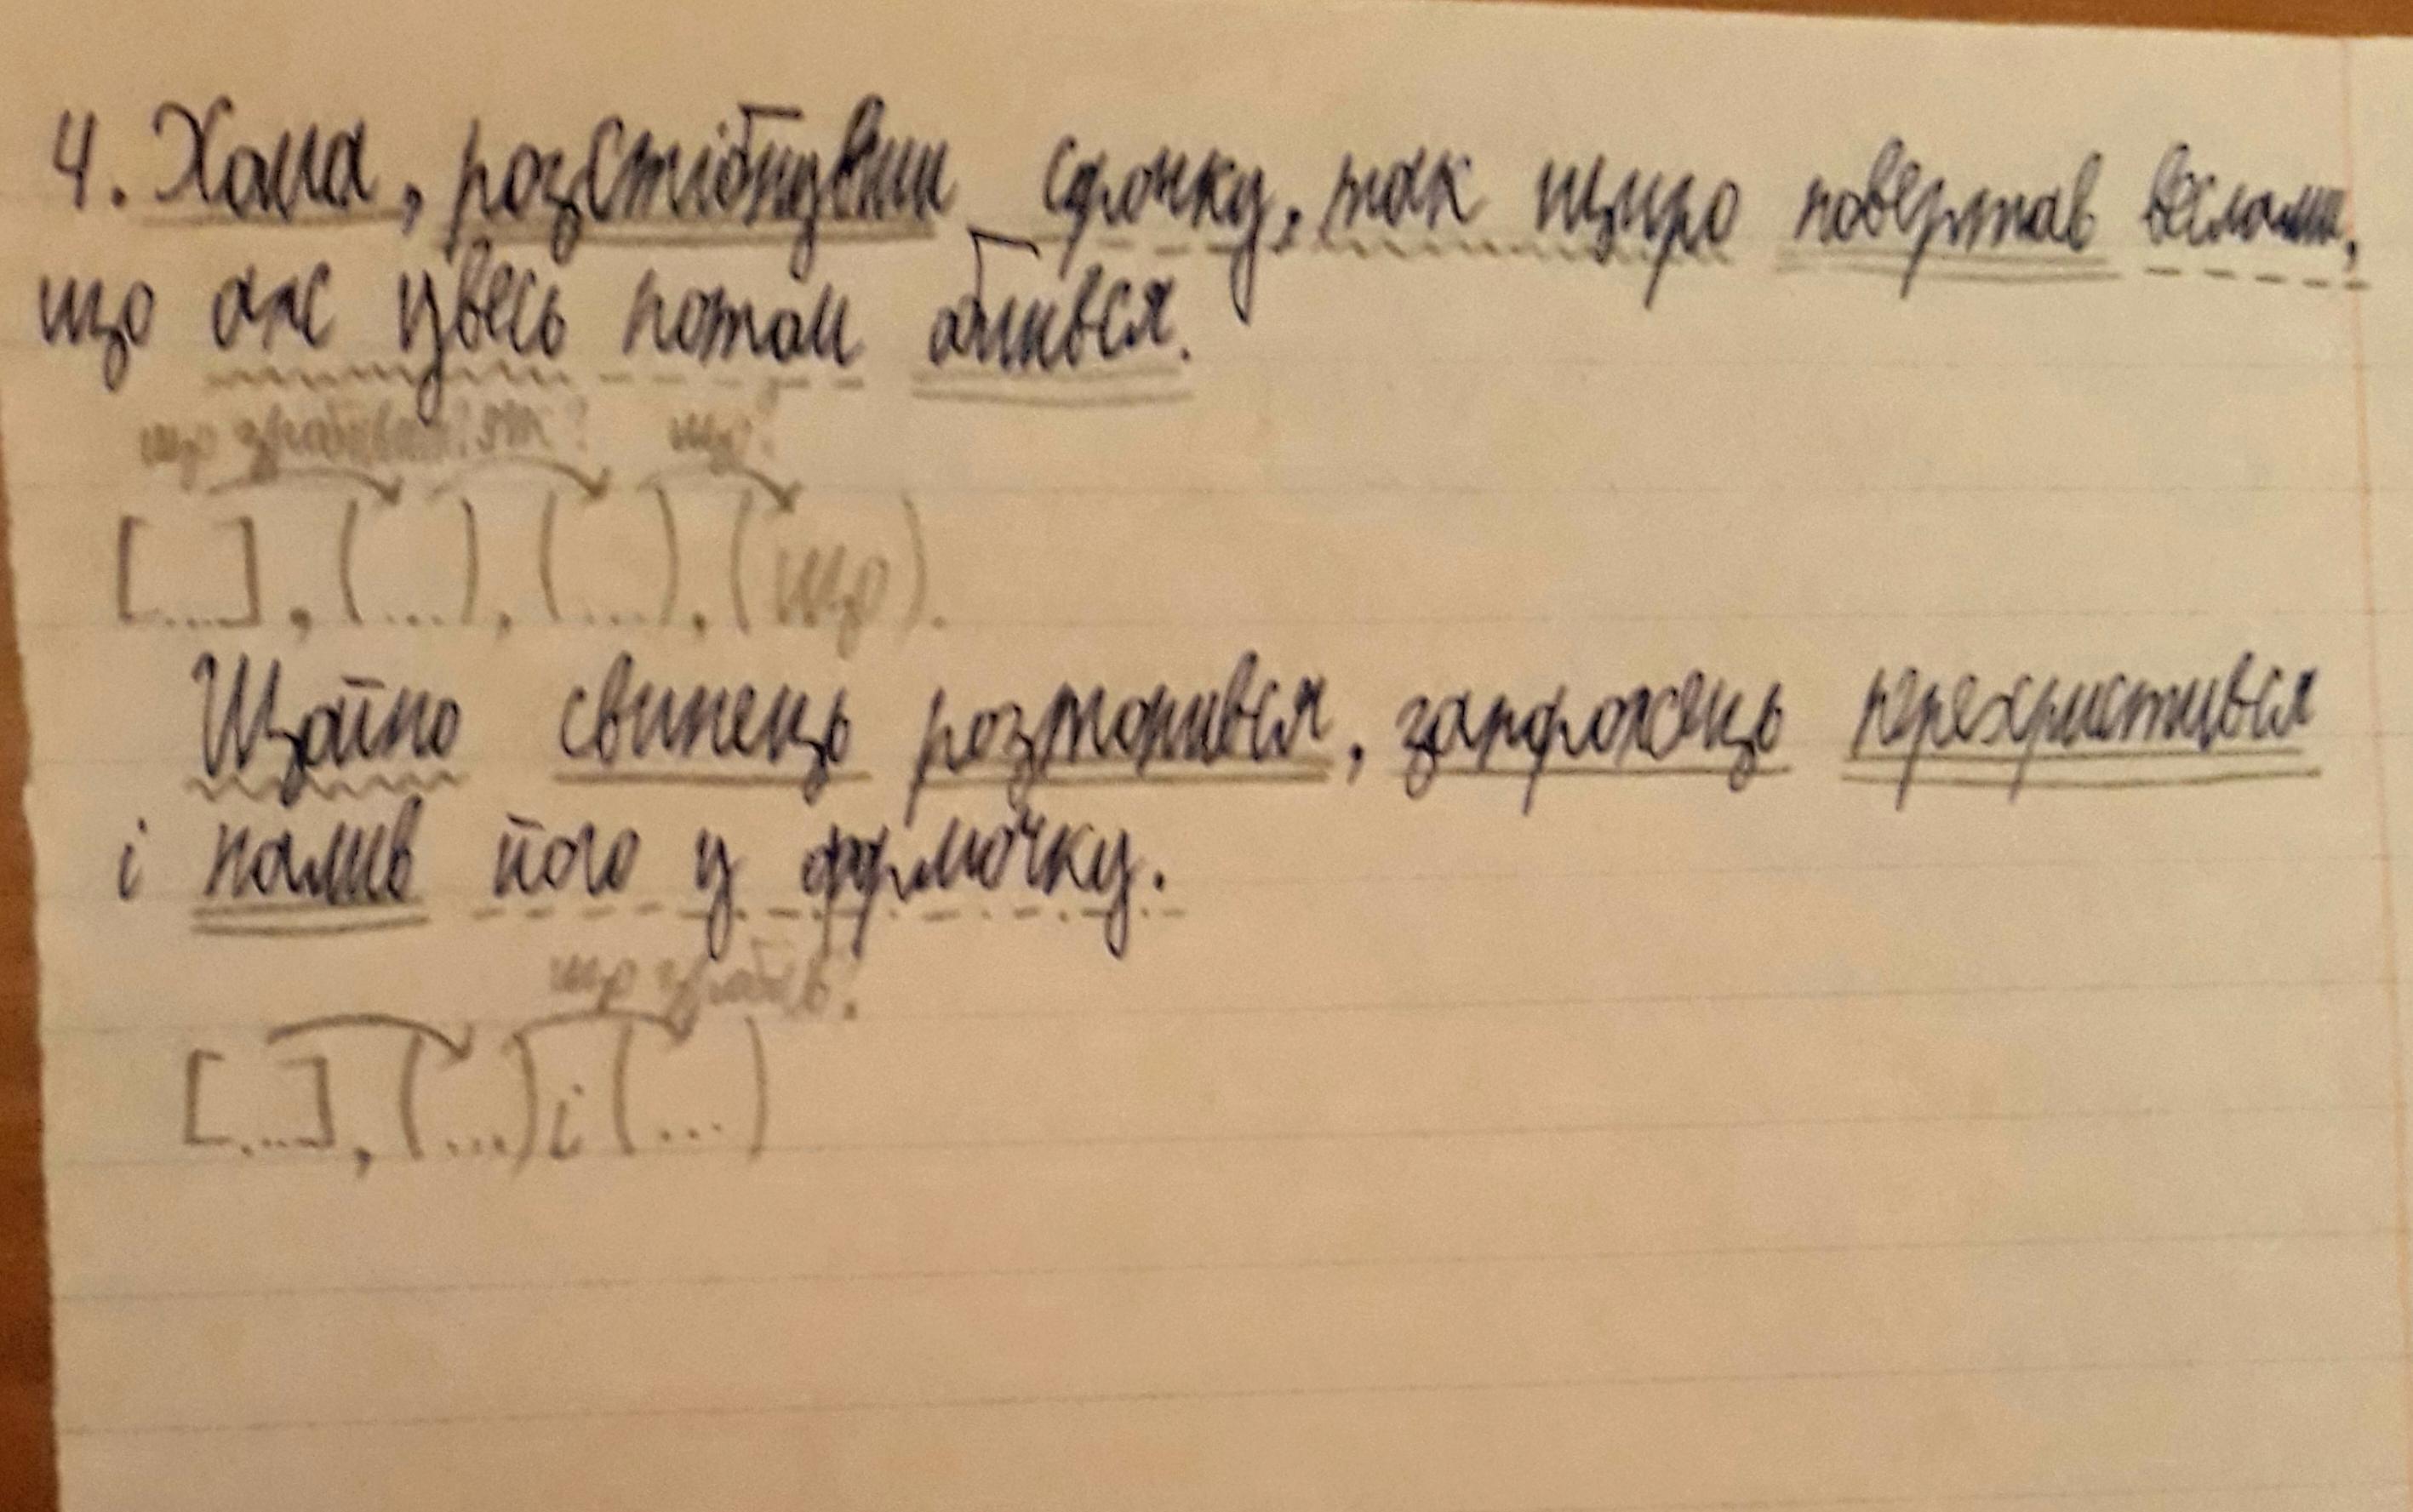 4. Хома, розстібнувши сорочку, так щиро повертав веслами,
що аж увесь потом облився.
що зробивши? як? що?
[...], (...), (...), (що).
Щойно свинець розтопився, запорожець перехристився
і налив його у формочку.
що зробив?
[...], (...) і (...)